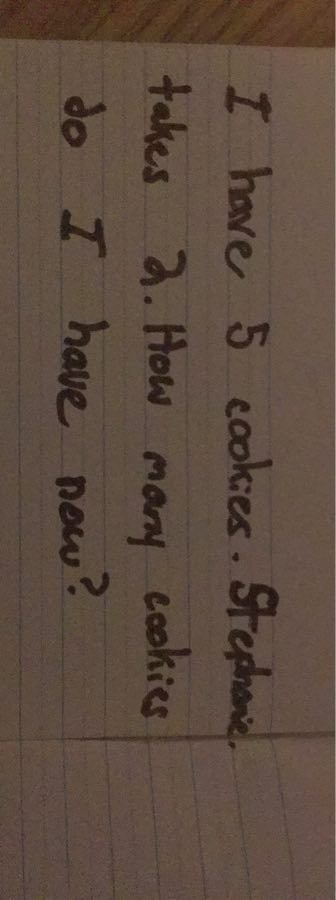 I have 5 cookies. Stephanie.
takes 2. How many cookies
do I have now?